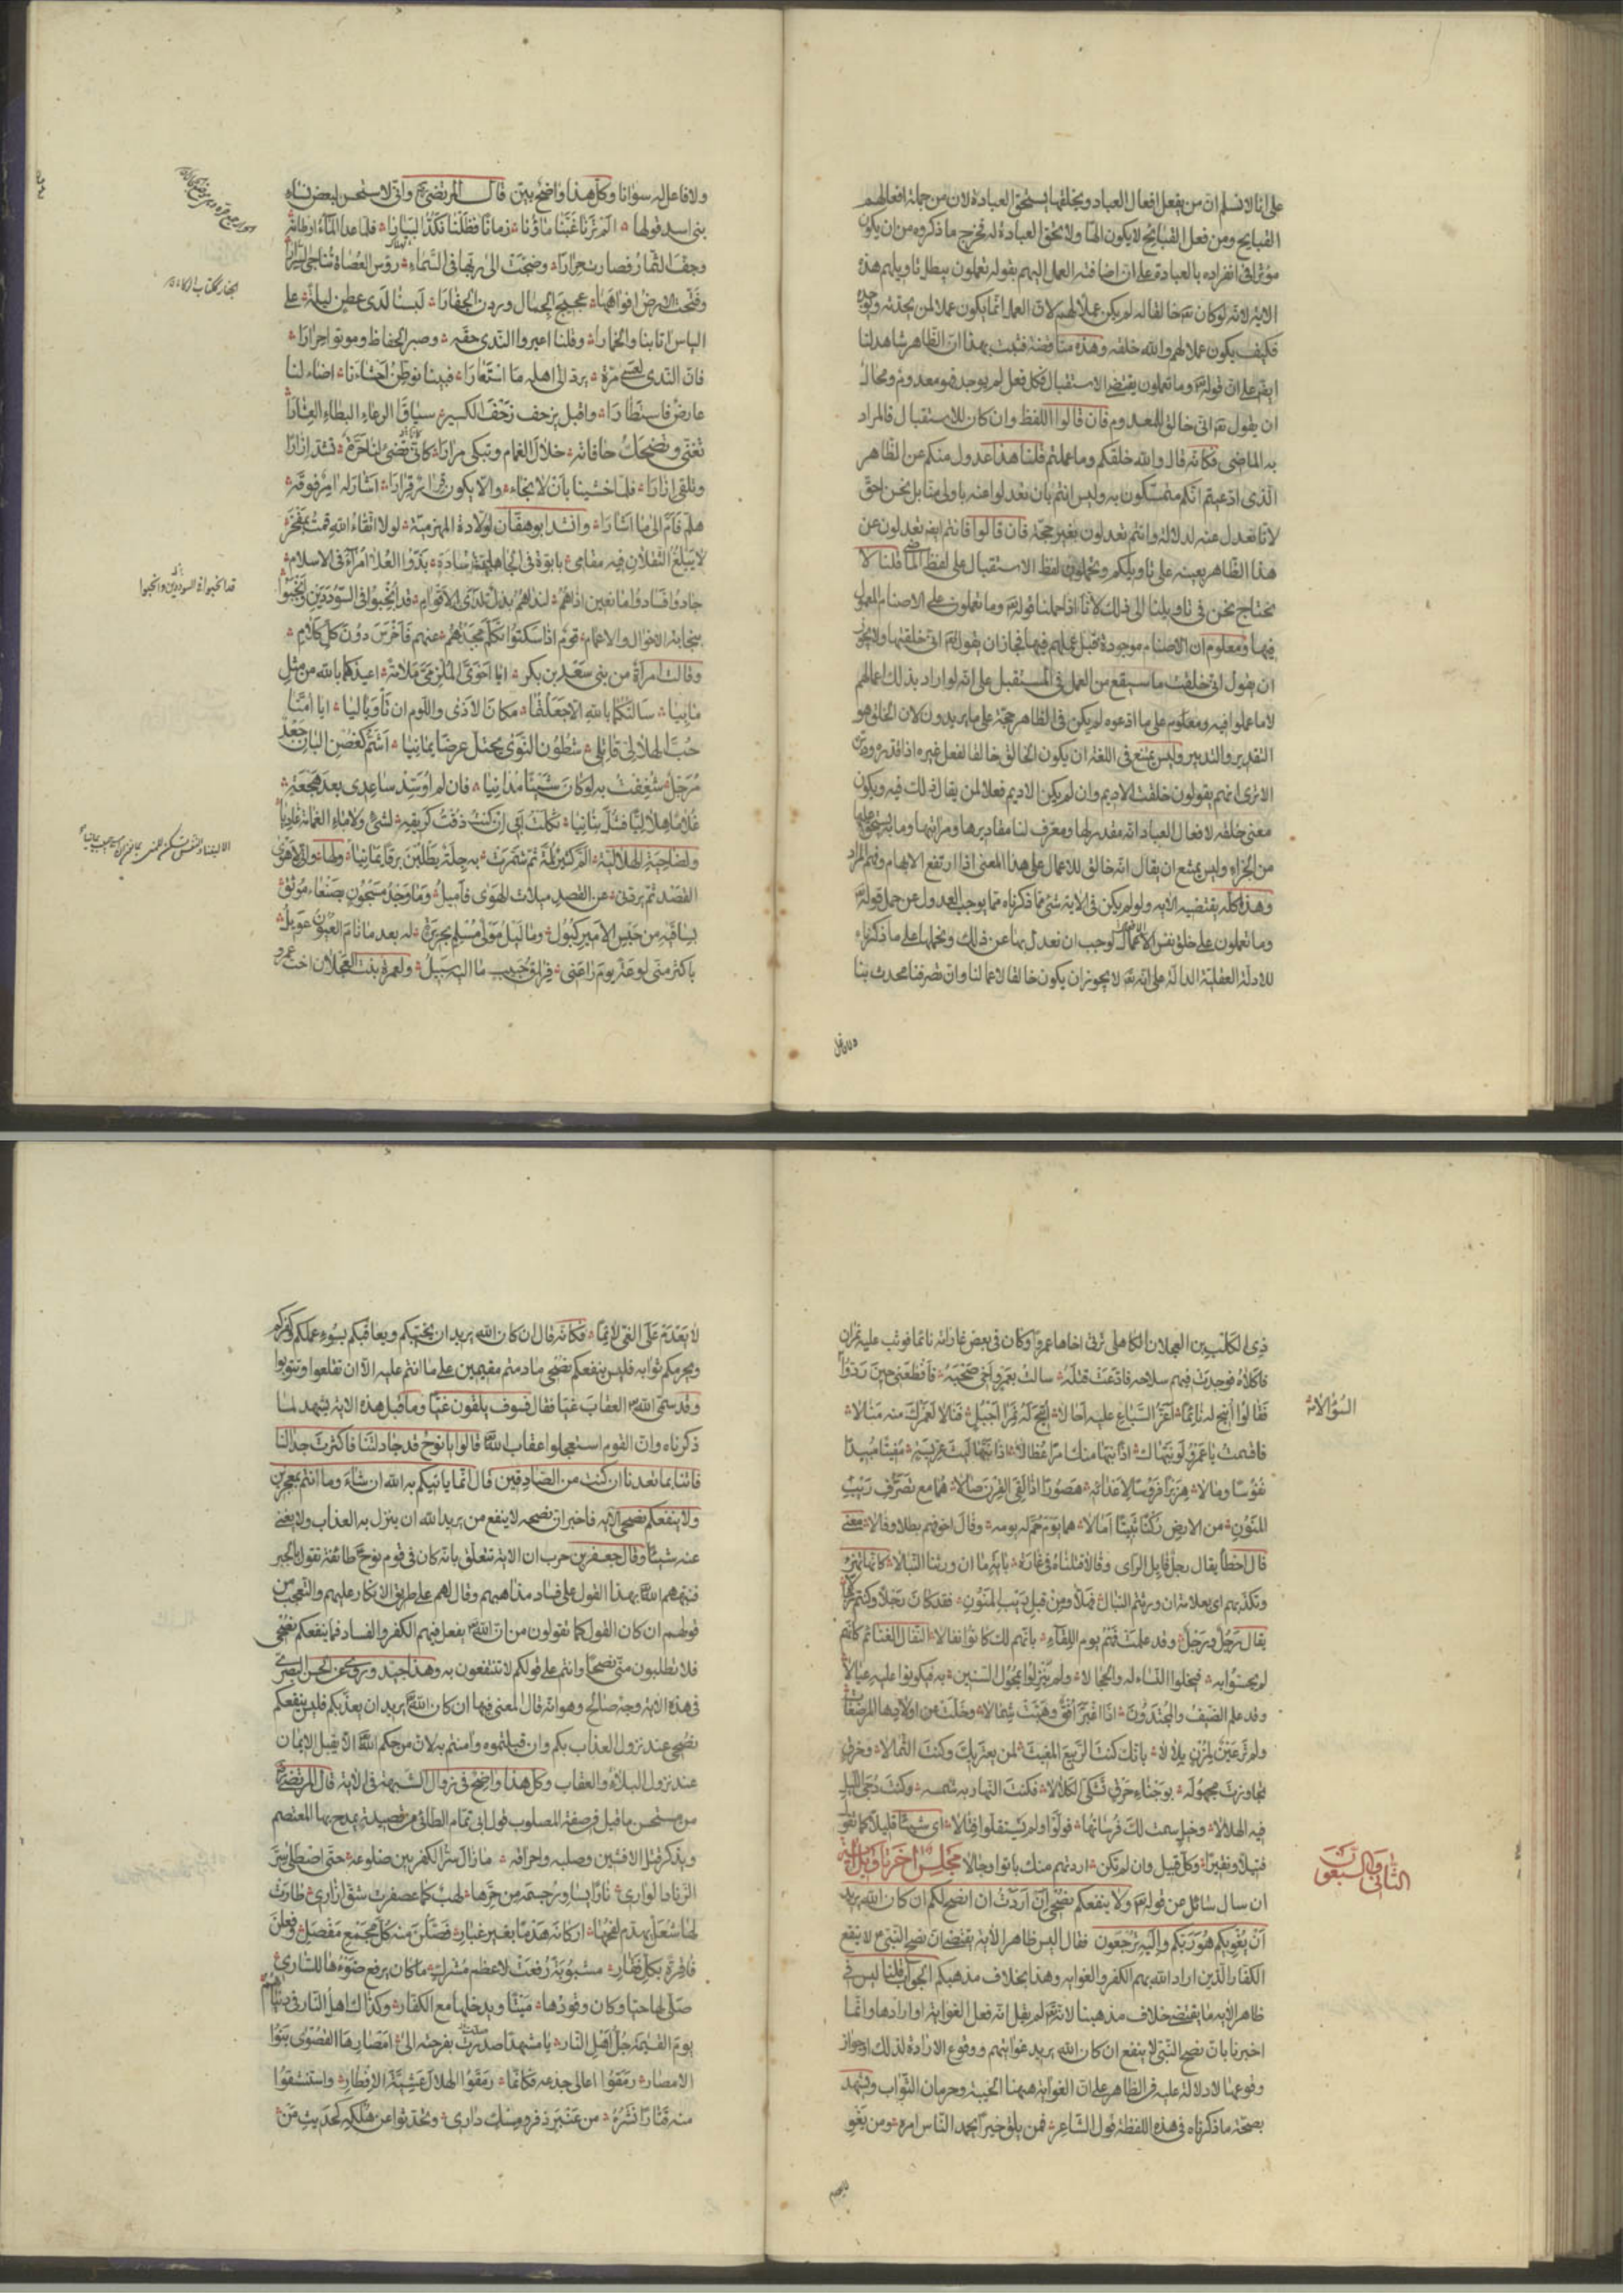 على انا لا نسلم ان من يفعل افعال العباد ويخلقها يستحق العبادة لان من جملة افعالهم
القبايح ومن فعل القبايح لا يكون الها ولا يحق العبادة له فخرج ما ذكروه من ان يكون
مؤثرا في انفراده بالعبادة على ان اضافته العمل اليهم بقوله تعملون يبطل تاويلهم هذه
الاية لانه لو كان تع خالقا له لم يكن عملا لهم لان العمل انما يكون عملا لمن يحدثه ويوجده
فكيف يكون عملا لهم والله خلقه وهذه مناقضة فثبت بهذا ان الظاهر شاهد لنا
ايض على ان قوله تع وما تعملون يقتضى الاستقبال فكل فعل لم يوجد فهو معدوم ومحال
ان يقول تع انى خالق للمعدوم فان قالوا اللفظ وان كان للاستقبال فالمراد
به الماضى فكانه قال والله خلقكم وما عملتم قلنا هذا عدول منكم عن الظاهر
الذى ادعيتم انكم متمسكون به وليس انتم بان تعدلوا عنه باولى منا بل نحن احق
لانا نعدل عنه لدلالة وانتم تعدلون بغير حجة فان قالوا فانتم ايض تعدلون عن
هذا الظاهر بعينه على تاويلكم وتحملون لفظ الاستقبال على لفظ الماضى قلنا لا
نحتاج نحن فى تاويلنا الى ذلك لانا اذا حملنا قوله تع وما تعملون على الاصنام المعمول
فيها ومعلوم ان الاصنام موجودة قبل عملهم فيها فجاز ان يقول تع انى خلقتها ولا يجوز
ان يقول انى خلقت ما سيقع من العمل فى المستقبل على انه لو اراد بذلك اعمالهم
لا ما عملوا فيه ومعلوم على ما ادعوه لم يكن فى الظاهر حجة على ما يريدون لان الخلق هو
التقدير والتدبير وليس يمتنع فى اللغة ان يكون الخالق خالقا لفعل غيره اذا قدره ودبره
الا ترى انهم يقولون خلقت الاديم وان لم يكن الاديم فعلا لمن يقال ذلك فيه ويكون
معنى خلقه لافعال العباد انه مقدر لها ومعرف لنا مقاديرها ومراتبها وما يستحق عليها
من الجزاء وليس يمتنع ان يقال انه خالق للاعمال على هذا المعنى اذا ارتفع الابهام وفهم المراد
وهذا كله يقتضيه الاية ولو لم يكن فى الاية شئ مما ذكرناه مما يوجب العدول عن حمل قوله تع
وما تعملون على خلق نفس الاعمال لوجب ان نعدل بها عن ذلك ونحملها على ما ذكرناه
للادلة العقلية الدالة على انه تع لا يجوز ان يكون خالقا لاعمالنا وان تصرفنا محدث بنا
ولا فاعل له سوانا وكل هذا واضح بين قال المرتضى رض وانى لاستحسن لبعض نساء
بنى اسد قولها الم ترنا غبنا ماؤنا زمانا فظلنا نكد البيارا فلما عدا الماء اوطانه
وجف الثمار فصارت حرارا وضجت الى ربها فى السماء رؤس العضاة تناجى السرارا
وفتحت الارض افواهها عجيج الجمال وردن الجفارا لبسنا لدى عطن ليلة على
الباس اثابنا والخمارا وقلنا اعيروا الندى حقه وصبر الحفاظ وموتوا حرارا
فان الندى لعسى مرة يرد الى اهله ما استعارا فبينا نوطن احشاءنا اضاء لنا
عارض فاستطارا واقبل يزحف زحف الكسير سياق الرعاء البطاء العشارا
تغنى وتضحك حافاته خلال الغمام وتبكى مرارا كانا تضئ لنا حرة تشد ازارا
وتلقى ازارا فلما خشينا بان لا نجاء والا يكون قرار قرارا اشار له امر فوقه
هلم فام الى ما اشارا وانشد ابو هفان لولادة المهزمية لولا اتقاء الله قمت بمفخر
لا يبلغ الثقلان فيه مقامى بابوة فى الجاهلية سادة بذوا العلا امراء فى الاسلام
جادوا فسادوا مانعين اذاهم لنداهم بذل لدى الاقوام قد انجبوا فى السوددين وانجبوا
بنجابة الاخوال والاعمام قوم اذا سكتوا تكلم مجدهم عنهم فاخرس دون كل كلام
وقالت امراة من بنى سعد بن بكر ايا اخوى الملزمى ملامة اعيذكما بالله من مثل
مابيا سالتكما بالله الا جعلتما مكان الاذى واللوم ان تأويا ليا ايا امتا
حب الهلالى قاتلى شطون النوى يحتل عرضا يمانيا اشم كغصن البان جعد
مرجل شغفت به لو كان شيئا مدانيا فان لم اوسد ساعدى بعد هجعة
غلاما هلاليا فشلت بنانيا ثكلت ابى ان كنت ذقت كريقه لشئ ولا ماء الغمامة غاديا
ولصاحبة الهلالية
الفصد ثم يردنى عن الفصد ميلات الهوى فاميل وما وجد مسجون بصنعاء موثق
بساقيه من حبس الامير كبول وما ليل مولى مسلم بجريرة له بعد ما نام العيون عويل
باكثر منى لوعة يوم راعنى فراق حبيب ما اليه سبيل ولعمرة بنت العجلان اخت عمرو
ذى الكلب بن العجلان الكاهلى ترثى اخاها عمرا وكان فى بعض غاراته نائما فوثب عليه نمران
فاكلاه فوجدت فهم سلاحه فادعت قتله سالت بعمرو اخى صحبه فافظعنى حين ردوا
فقالوا اتيح له نائما اعز السباع عليه احالا اتيح له نمرا اجبل فنالا لعمرك منه منالا
فاقسمت يا عمرو لو نبهاك اذا نبها منك امرا عضالا اذا نبها ليث عريسة مفيتا مفيدا
نفوسا ومالا هزبرا فروسا لاعدائه هصورا اذا لقى القرن صالا هما مع تصرف ريب
المنون من الارض ركنا ثبيتا امالا هما يوم حم له يومه وقال اخو فهم بطلا وفالا معنى
فال اخطا يقال رجل فايل الراى وقالا قتلناه فى غارة باية ما ان ورثنا النبالا كانها تهزء
وتكذبهم اى بعلامة ان ورثتم النبال فهلا ومن قبل ريب المنون فقد كان رجلا وكنتم رجالا
يقال رجل ورجل وقد علمت فهم يوم اللقاء بانهم لك كانوا نفالا النفال الغنائم كانهم
لم يحسوا به فيخلوا النساء له والحجالا ولم ينزلوا بمحول السنين به فيكونوا عليه عيالا
وقد علم الضيف والمجتدون اذا اغبر افق وهبت شمالا وخلت عن اولادها المرضعات
ولم تر عين لمزن بلالا بانك كنت الربيع المغيث لمن يعتريك وكنت الثمالا وخرق
تجاوزت مجهوله بوجناء حرف تشكى الكلالا فكنت النهار به شمسه وكنت دجى الليل
فيه الهلالا وخيل سمت لك فرسانها فولوا ولم يستقلوا قبالا اى شيئا قليلا
فتيلا ونقيرا وكل قبيل وان لم تكن اردتهم منك باتوا وجالا مجلس اخر تاويل اية
ان سال سائل عن قوله تع ولا ينفعكم نصحى ان اردت ان انصح لكم ان كان الله يريد
ان يغويكم هو ربكم واليه ترجعون فقال اليس ظاهر الاية يقتضى ان نصح النبى لا ينفع
الكفار الذين اراد الله بهم الكفر والغواية وهذا بخلاف مذهبكم الجواب قلنا ليس فى
ظاهر الاية ما يقتضى خلاف مذهبنا لانه تع لم يقل انه فعل الغواية او ارادها وانما
اخبرنا بان نصح النبى لا ينفع ان كان الله يريد غوايتهم ووقوع الارادة لذلك او جواز
وقوعها لا دلالة عليه فى الظاهر على ان الغواية ههنا الخيبة وحرمان الثواب ويشهد
بصحة ما ذكرناه فى هذه اللفظة قول الشاعر فمن يلق خيرا يحمد الناس امره ومن يغو
السؤال الاية
الثانى والسبعون
لا يعدم على الغى لائما فكانه قال ان كان الله يريد ان يخيبكم ويعاقبكم بسوء عملكم وكفركم
ويحرمكم ثوابه فليس ينفعكم نصحى ما دمتم مقيمين على ما انتم عليه الا ان تقلعوا وتتوبوا
وقد سمى الله تع العقاب غيا فقال فسوف يلقون غيا وما قبل هذه الاية يشهد لما
ذكرناه وان القوم استعجلوا عقاب الله تع قالوا يا نوح قد جادلتنا فاكثرت جدالنا
فاتنا بما تعدنا ان كنت من الصادقين قال انما ياتيكم به الله ان شاء وما انتم بمعجزين
ولا ينفعكم نصحى الاية فاخبر ان نصحه لا ينفع من يريد الله ان ينزل به العذاب ولا يغنى
عنه شيئا وقال جعفر بن حرب ان الاية تتعلق بانه كان فى قوم نوح طائفة تقول بالجبر
فنبههم الله تع بهذا القول على فساد مذاهبهم وقال لهم على طريق الانكار عليهم والتعجب من
قولهم ان كان القول كما تقولون من ان الله تع يفعل فيهم الكفر والفساد فما ينفعكم نصحى
فلا تطلبون منى نصحا وانتم على قولكم لا تنتفعون به وهذا جيد وروى عن الحسن البصرى
فى هذه الاية وجه صالح وهو انه قال المعنى فيها ان كان الله تع يريد ان يعذبكم فليس ينفعكم
نصحى عند نزول العذاب بكم وان قبلتموه وامنتم به لان من حكم الله تع الا يقبل الايمان
عند نزول البلاء والعقاب وكل هذا واضح فى زوال الشبهة فى الاية قال المرتضى رض
من مستحسن ما قيل فى صفة المصلوب قول ابى تمام الطائى من قصيدة يمدح بها المعتصم
ويذكر قتل الافشين وصلبه واحراقه ما زال سر الكفر بين ضلوعه حتى اصطلى سر
الزناد الوارى نارا يساور جسمه من حرها لهب كما عصفرت شق ازارى طارت
لها شعل يهدم لفحها اركانه هدما بغير غبار فصلن منه كل مجمع مفصل وفعلن
فاقرة بكل فقار مشبوبة رفعت لاعظم مشرك ما كان يرفع ضوءها للسارى
صلى لها حيا وكان وقودها ميتا ويدخلها مع الكفار وكذاك اهل النار فى دنياهم
يوم القيمة جل اهل النار يا مشهدا صدرت بفرحته الى امصارها القصوى بنوا
الامصار رمقوا اعالى جذعه فكانما رمقوا الهلال عشية الافطار واستنشقوا
منه قتارا نشره من عنبر ذفر ومسك دارى وتحدثوا عن هلكه كحديث من